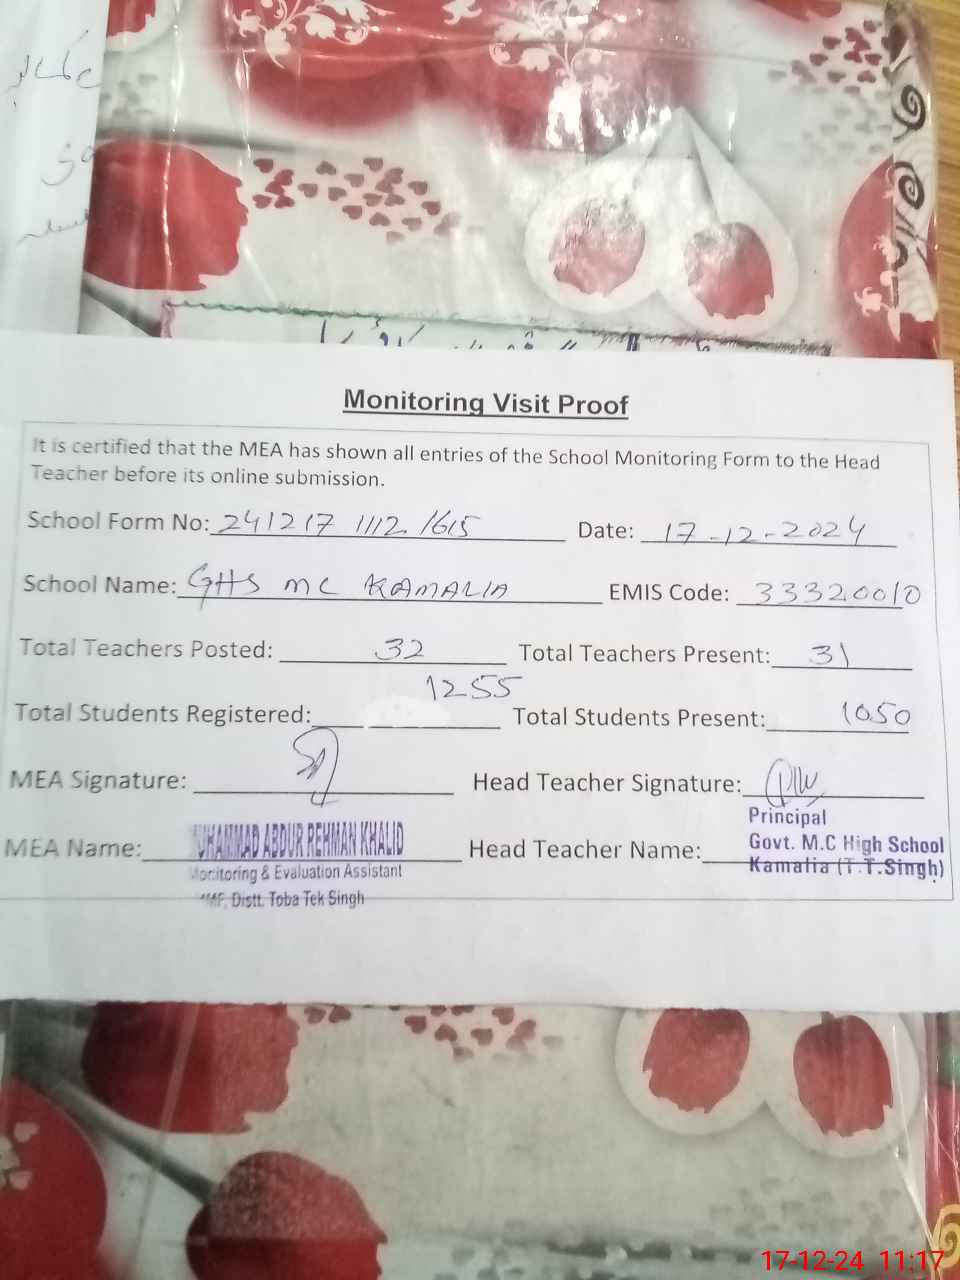 Monitoring Visit Proof
It is certified that the MEA has shown all entries of the School Monitoring Form to the Head
Teacher before its online submission.
School Form No: 241217 1112 1615 Date: 17-12-2024
School Name: GHS MC KAMALIA EMIS Code: 33320010
Total Teachers Posted: 32 Total Teachers Present: 31
Total Students Registered: 1255 Total Students Present: 1050
MEA Signature: Head Teacher Signature:
Principal
MEA Name: MUHAMMAD ABDUR REHMAN KHALID Head Teacher Name: Govt. M.C High School
Monitoring & Evaluation Assistant Kamalia (T.T.Singh)
Distt. Toba Tek Singh
17-12-24 11:17